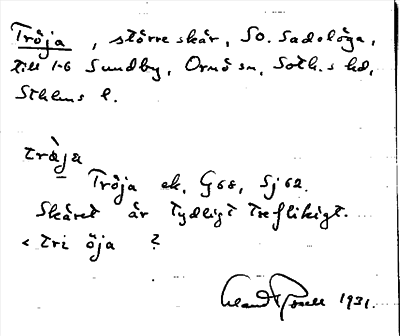 Tröja, större skär, SO. Sadelöga,
till 1-6 Sundby, Ornö sn, Soth.s hd,
Sthlms l.
träja
Tröja ek. G68, Sj62.
Skäret är tydligt treflikigt.
< tri öja ?
1931.